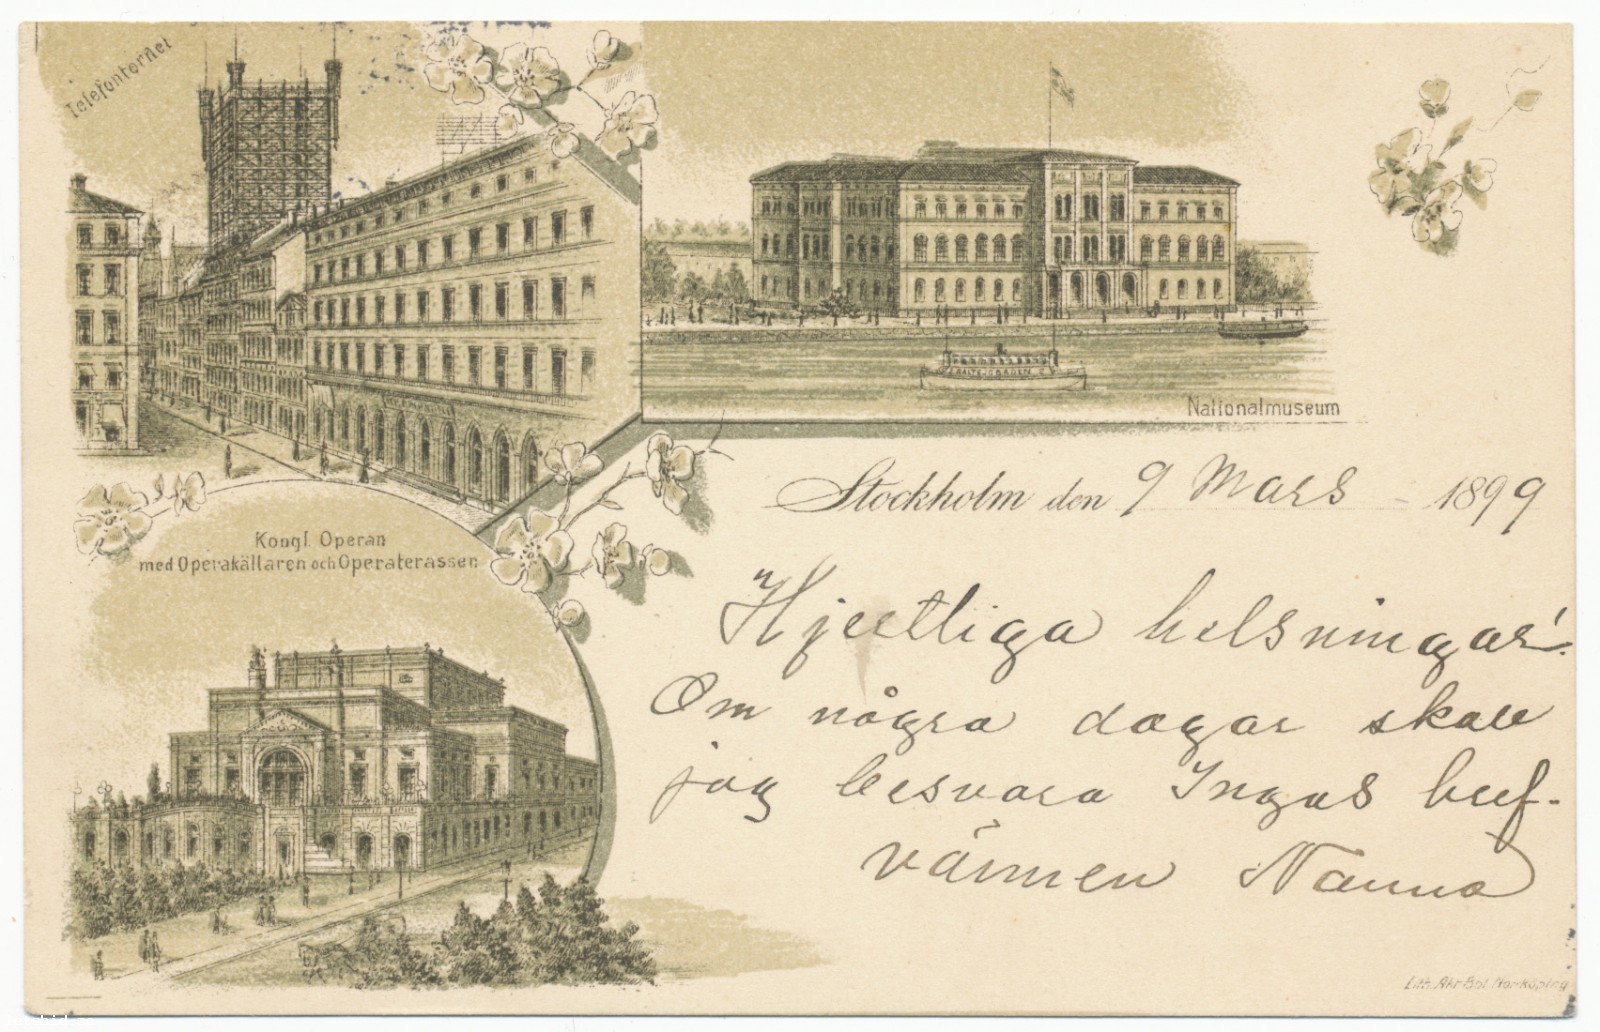 Telefontornet
Nationalmuseum
Stockholm den 9 Mars 1899
Kongl. Operan
med Operakällaren och Operaterassen
Hjertliga helsningar!
Om några dagar skall
jag besvara Ingas bref.
vännen Nanna
Lith. Akt Bol. Norrköping